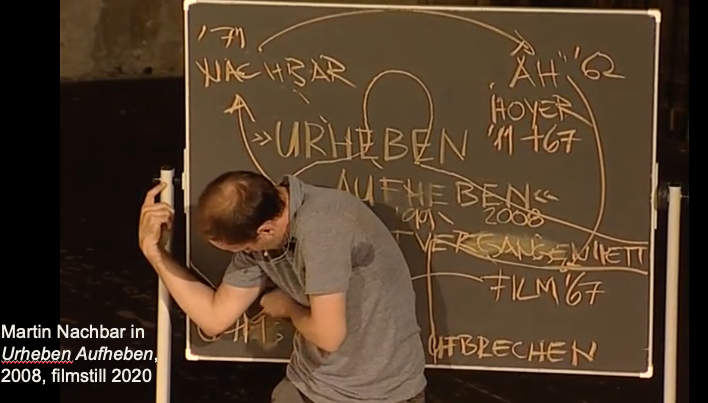 '71
NACHBAR
"ÄH" '62
HOYER
'11 †67
»URHEBEN
AUFHEBEN«
2008
VERGANGENHEIT
FILM '67
UFBRECHEN
Martin Nachbar in
Urheben Aufheben,
2008, filmstill 2020